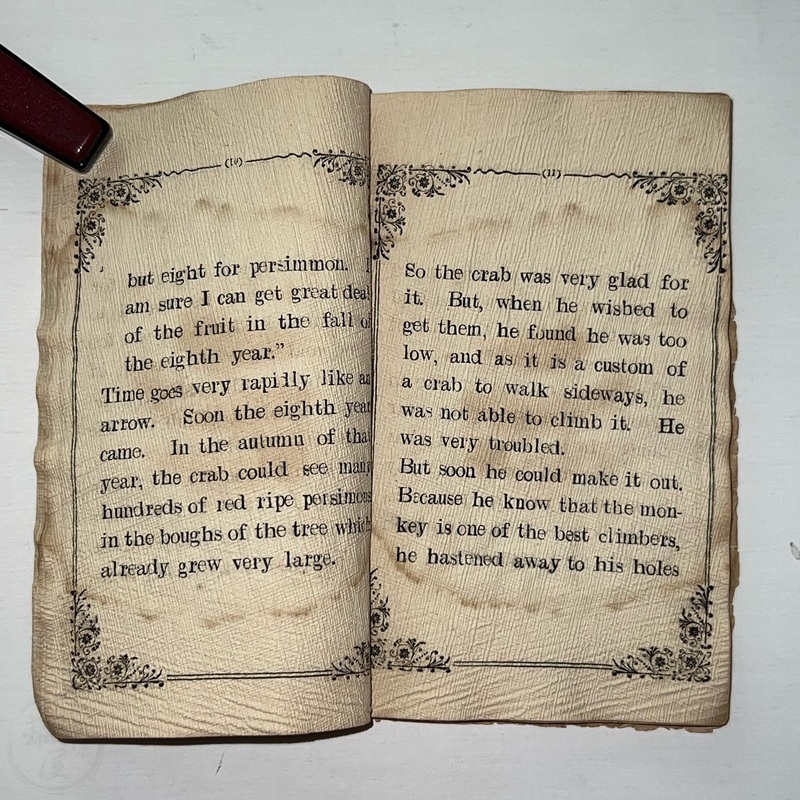 (10)
but eight for persimmon. I
am sure I can get great deal
of the fruit in the fall of
the eighth year.”
Time goes very rapidly like an
arrow. Soon the eighth year
came. In the autumn of that
year, the crab could see many
hundreds of red ripe persimons
in the boughs of the tree which
already grew very large.
(11)
So the crab was very glad for
it. But, when he wished to
get them, he found he was too
low, and as it is a custom of
a crab to walk sideways, he
was not able to climb it. He
was very troubled.
But soon he could make it out.
Because he know that the mon-
key is one of the best climbers,
he hastened away to his holes